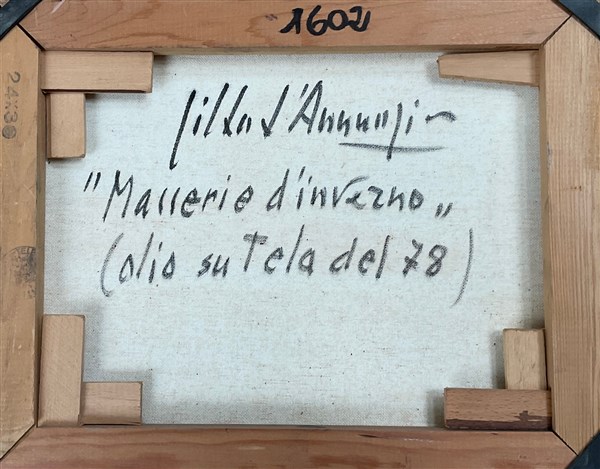 1602
24x30
Silvio d'Annunzio
"Masserie d'inverno"
(olio su Tela del 78)